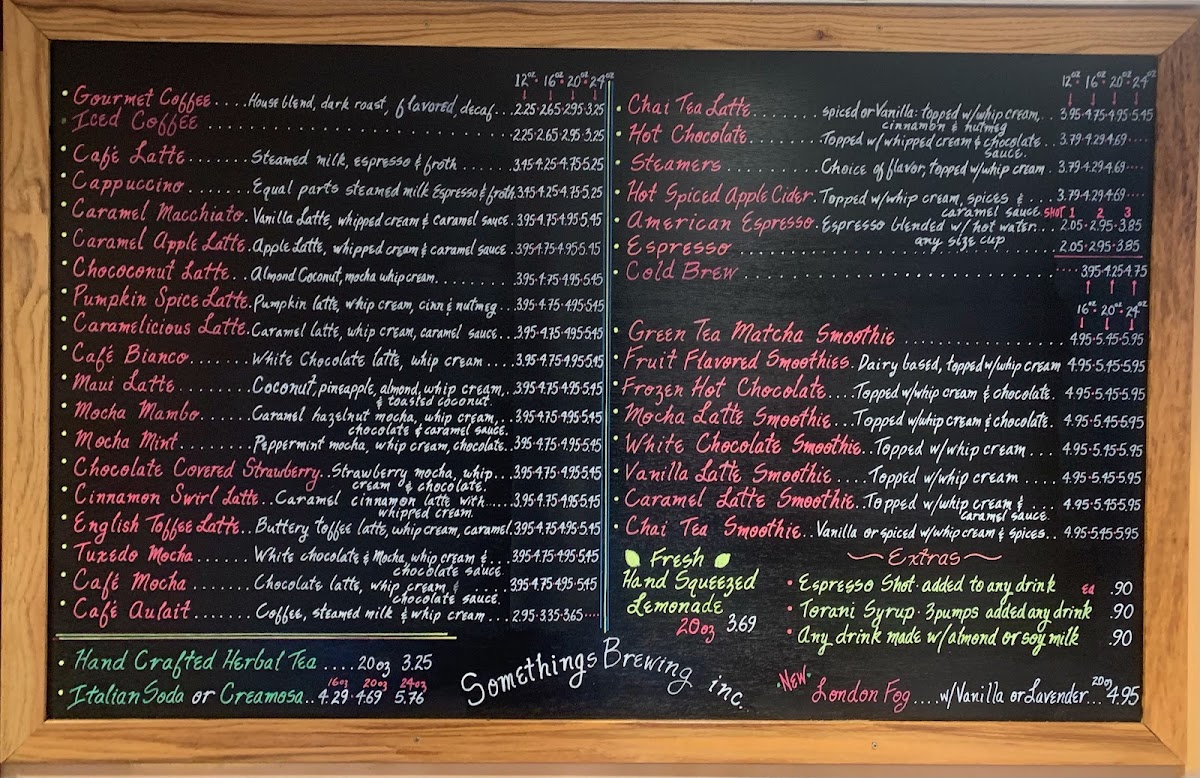 12oz · 16oz · 20oz · 24oz
· Gourmet Coffee.....House blend, dark roast, flavored, decaf...2.25·2.65·2.95·3.25
· Iced Coffee ........ 2.25·2.65·2.95·3.25
· Café Latte........Steamed milk, espresso & froth........3.45·4.25·4.75·5.25
· Cappuccino........Equal parts steamed milk Espresso & froth.3.45·4.25·4.75·5.25
· Caramel Macchiato.Vanilla Latte, whipped cream & caramel sauce.3.95·4.75·4.95·5.45
· Caramel Apple Latte.Apple Latte, whipped cream & caramel sauce.3.95·4.75·4.95·5.45
· Chococonut Latte..Almond Coconut, mocha whip cream........3.95·4.75·4.95·5.45
· Pumpkin Spice Latte.Pumpkin latte, whip cream, cinn & nutmeg...3.95·4.75·4.95·5.45
· Caramelicious Latte.Caramel latte, whip cream, caramel sauce...3.95·4.75·4.95·5.45
· Café Bianco.......White Chocolate latte, whip cream....3.95·4.75·4.95·5.45
· Maui Latte........Coconut, pineapple, almond, whip cream,..3.95·4.75·4.95·5.45
& toasted coconut.
· Mocha Mambo......Caramel hazelnut mocha, whip cream...3.95·4.75·4.95·5.45
chocolate & caramel sauce.
· Mocha Mint........Peppermint mocha, whip cream, chocolate.3.95·4.75·4.95·5.45
· Chocolate Covered Strawberry..Strawberry mocha, whip...3.95·4.75·4.95·5.45
cream & chocolate.
· Cinnamon Swirl Latte..Caramel cinnamon latte with....3.95·4.75·4.95·5.45
whipped cream.
· English Toffee Latte..Buttery toffee latte, whip cream, caramel.3.95·4.75·4.95·5.45
· Tuxedo Mocha.......White chocolate & Mocha, whip cream &...3.95·4.75·4.95·5.45
chocolate sauce.
· Café Mocha........Chocolate latte, whip cream & ....3.95·4.75·4.95·5.45
chocolate sauce.
· Café Aulait.......Coffee, steamed milk & whip cream...2.95·3.35·3.65····
· Hand Crafted Herbal Tea ....20oz 3.25
16oz 20oz 24oz
· Italian Soda or Creamosa..4.29·4.69 5.76
Somethings Brewing inc.
12oz · 16oz · 20oz · 24oz
· Chai Tea Latte........spiced or Vanilla: topped w/whip cream,..3.95·4.75·4.95·5.45
cinnamon & nutmeg
· Hot Chocolate........Topped w/ whipped cream & chocolate..3.79·4.29·4.69····
sauce.
· Steamers..........Choice of flavor, topped w/whip cream..3.79·4.29·4.69····
· Hot Spiced Apple Cider.Topped w/whip cream, spices & ...3.79·4.29·4.69····
caramel sauce SHOT 1 2 3
· American Espresso.Espresso blended w/ hot water...2.05·2.95·3.85
any size cup
· Espresso ........ 2.05·2.95·3.85
· Cold Brew ........ ····3.95·4.25·4.75
16oz · 20oz · 24oz
· Green Tea Matcha Smoothie........4.95·5.45·5.95
· Fruit Flavored Smoothies.Dairy based, topped w/whip cream 4.95·5.45·5.95
· Frozen Hot Chocolate....Topped w/whip cream & chocolate. 4.95·5.45·5.95
· Mocha Latte Smoothie...Topped w/whip cream & chocolate. 4.95·5.45·5.95
· White Chocolate Smoothie..Topped w/whip cream... 4.95·5.45·5.95
· Vanilla Latte Smoothie....Topped w/whip cream.... 4.95·5.45·5.95
· Caramel Latte Smoothie..Topped w/whip cream & .... 4.95·5.45·5.95
caramel sauce.
· Chai Tea Smoothie..Vanilla or spiced w/whip cream & spices.. 4.95·5.45·5.95
Fresh
Hand Squeezed
Lemonade
20oz 3.69
Extras
· Espresso Shot· added to any drink ea .90
· Torani Syrup· 3 pumps added any drink .90
· Any drink made w/almond or soy milk .90
·New· London Fog....w/Vanilla or Lavender...20oz 4.95